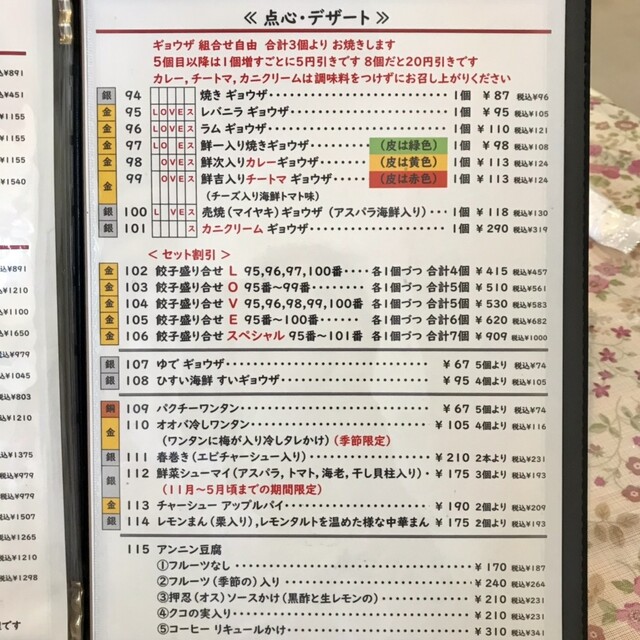 ≪ 点心・デザート ≫
ギョウザ 組合せ自由 合計3個より お焼きします
5個目以降は1個増すごとに5円引きです 8個だと20円引きです
カレー,チートマ,カニクリームは調味料をつけずにお召し上がりください
銀 94 焼き ギョウザ・・・ 1個 ¥ 87 税込¥96
金 95 LOVEス レバニラ ギョウザ・・・ 1個 ¥ 95 税込¥105
金 96 LOVEス ラム ギョウザ・・・ 1個 ¥ 110 税込¥121
金 97 LO ES 鮮一入り焼きギョウザ・・・ (皮は緑色) 1個 ¥ 98 税込¥108
金 98 OVES 鮮次入りカレーギョウザ・・・ (皮は黄色) 1個 ¥ 113 税込¥124
金 99 OVES 鮮吉入りチートマ ギョウザ・・・ (皮は赤色) 1個 ¥ 113 税込¥124
(チーズ入り海鮮トマト味)
銀 100 L VES 売焼(マイヤキ)ギョウザ(アスパラ海鮮入り)・・・ 1個 ¥ 118 税込¥130
銀 101 ス カニクリーム ギョウザ・・・ 1個 ¥ 290 税込¥319
<セット割引>
金 102 餃子盛り合せ L 95,96,97,100番・・・・ 各1個づつ 合計4個 ¥ 415 税込¥457
金 103 餃子盛り合せ O 95番～99番・・・・・・・・ 各1個づつ 合計5個 ¥ 510 税込¥561
金 104 餃子盛り合せ V 95,96,98,99,100番 各1個づつ 合計5個 ¥ 530 税込¥583
金 105 餃子盛り合せ E 95番～100番・・・・・・ 各1個づつ 合計6個 ¥ 620 税込¥682
金 106 餃子盛り合せ スペシャル 95番～101番 各1個づつ 合計7個 ¥ 909 税込¥1000
銀 107 ゆで ギョウザ・・・ ¥ 67 5個より 税込¥74
銀 108 ひすい海鮮 すいギョウザ・・・ ¥ 95 4個より 税込¥105
銅 109 パクチーワンタン・・・ ¥ 67 5個より 税込¥74
金 110 オオバ冷しワンタン・・・ ¥ 105 4個より 税込¥116
(ワンタンに梅が入り冷しタレかけ)(季節限定)
銀 111 春巻き(エビチャーシュー入り)・・・ ¥ 210 2本より 税込¥231
銀 112 鮮菜シューマイ(アスパラ,トマト,海老,干し貝柱入り)・ ¥ 175 3個より 税込¥193
(11月～5月頃までの期間限定)
金 113 チャーシュー アップルパイ・・・ ¥ 190 2個より 税込¥209
銀 114 レモンまん(栗入り),レモンタルトを温めた様な中華まん ¥ 175 2個より 税込¥193
115 アンニン豆腐
①フルーツなし・・・ ¥ 170 税込¥187
②フルーツ(季節の)入り・・・ ¥ 240 税込¥264
③押忍(オス)ソースかけ(黒酢と生レモンの)・・・ ¥ 210 税込¥231
④クコの実入り・・・ ¥ 210 税込¥231
⑤コーヒー リキュールかけ・・・ ¥ 310 税込¥341
¥891
税込¥451
¥1155
¥1155
¥1155
¥1540
税込¥891
¥1210
¥1100
¥1650
税込¥979
¥1045
税込¥803
¥1210
¥1375
税込¥979
税込¥979
¥1507
¥1265
¥1210
¥1298
です